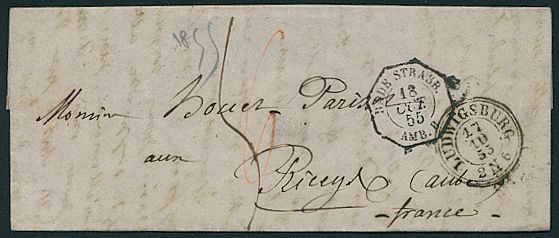 1855
B. DE STRASB.
18
OCT
55
AMB. B
LUDWIGSBURG
17
10
55
2 N 6
Monsieur Bouer Parisot
aux
Riceys (aube)
- france -